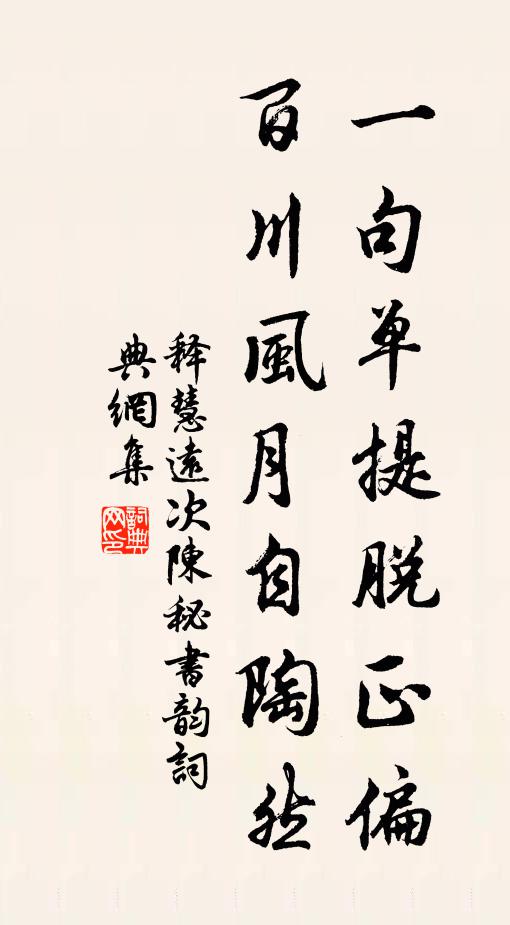 一句单提脱正偏
百川風月自陶然
释慧遠次陳秘書韵詞
典網集
詞典网印